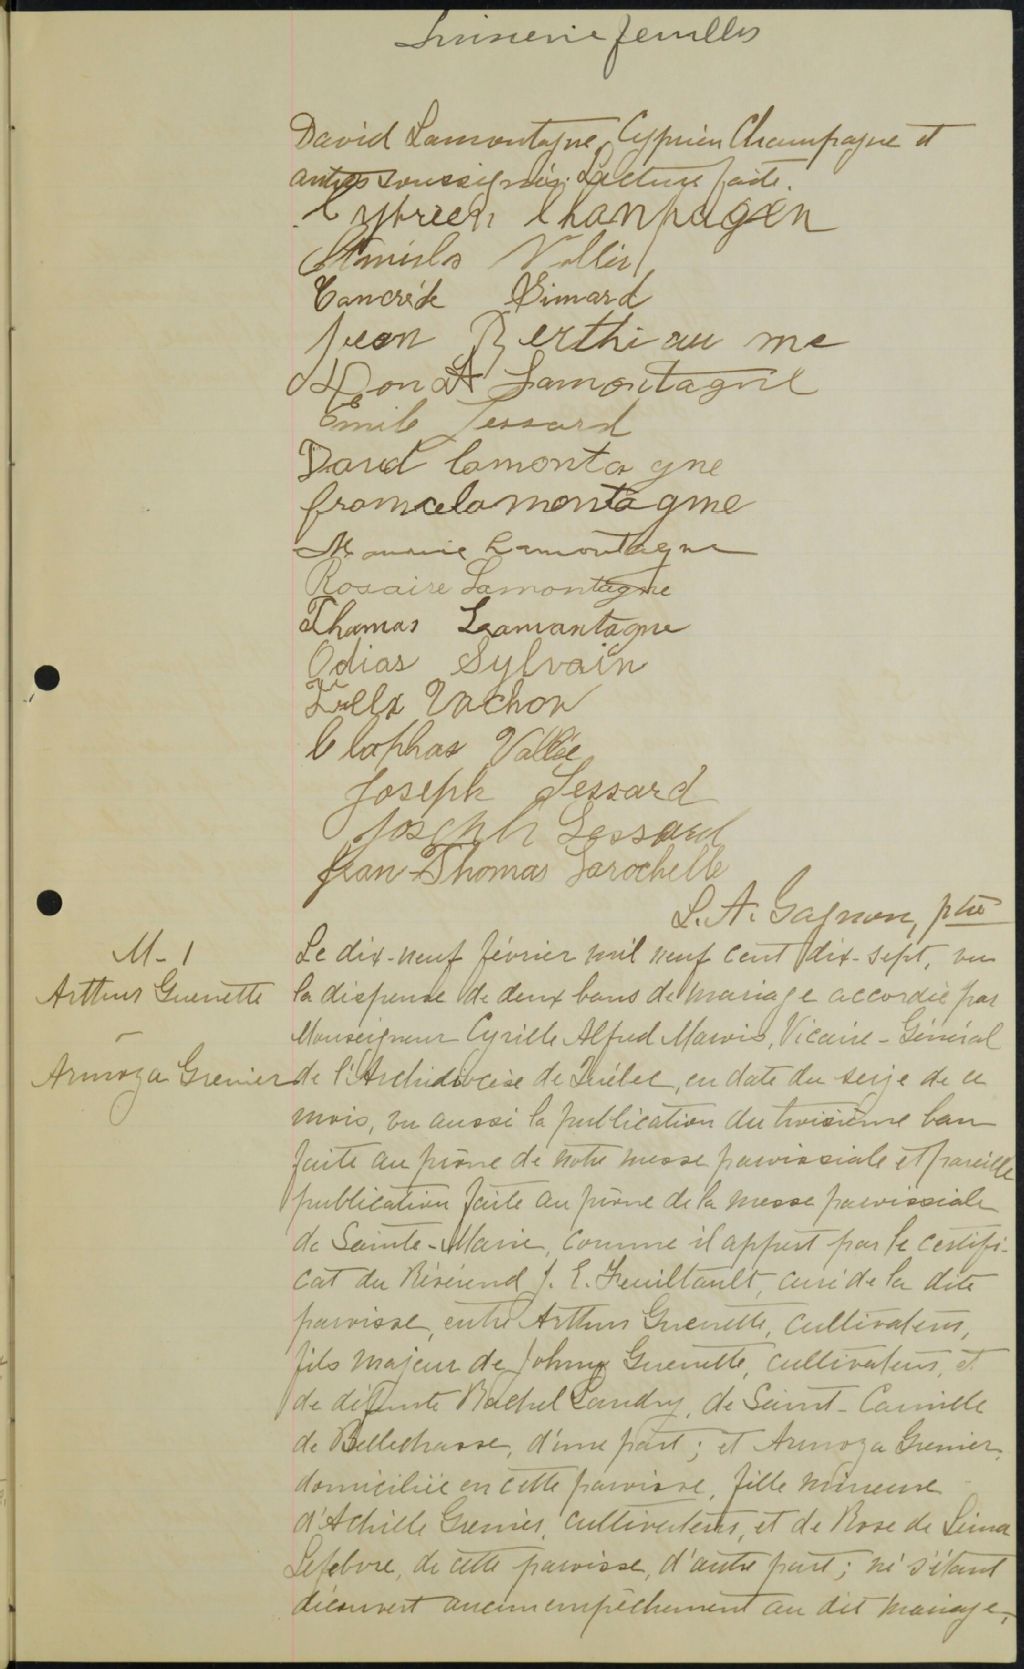 David Lamontagne, Cyprien Champagne et
autres soussignés. Lecture faite.
Cyprien Chanpagen
Stanislas Vallier
Tancrède Simard
Jean Berthiaume
Donat Lamontagne
Émile Lessard
David lamontagne
francelamontagme
Maurice Lamontagne
Rosaire Lamontagne
Thomas Lamantagne
Odias Sylvain
Félix Vachon
Clophas Vallée
Joseph Lessard
Joseph Lessard
Jean-Thomas Larochelle
L. A. Gagnon, ptre
M-1
Arthur Guenette
-
Armoza Grenier
Le dix-neuf février mil neuf cent dix-sept, vu
la dispense de deux bans de mariage accordée par
Monseigneur Cyrille Alfred Marois, Vicaire-Général
de l'Archidiocèse de Québec, en date du seize de ce
mois, vu aussi la publication du troisième ban
faite au prône de notre messe paroissiale et pareille
publication faite au prône de la messe paroissiale
de Sainte-Marie, comme il appert par le certifi-
cat du Révérend J. E. Feuiltault, curé de la dite
paroisse, entre Arthur Guenette, cultivateur,
fils majeur de Johny Guenette, cultivateur, et
de défunte Rachel Landry, de Saint-Camille
de Bellechasse, d'une part; et Armoza Grenier,
domiciliée en cette paroisse, fille mineure
d'Achille Grenier, cultivateur, et de Rose de Lima
Lefebvre, de cette paroisse, d'autre part; ne s'étant
découvert aucun empêchement au dit mariage,